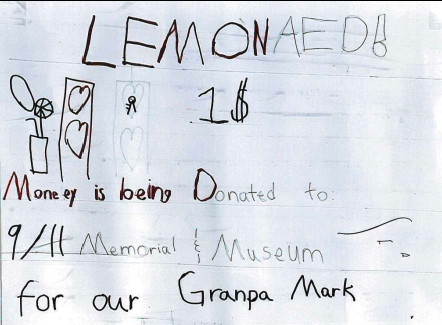 LEMONAED!
1$
Moneey is being Donated to:
9/11 Memorial & Museum
for our Granpa Mark